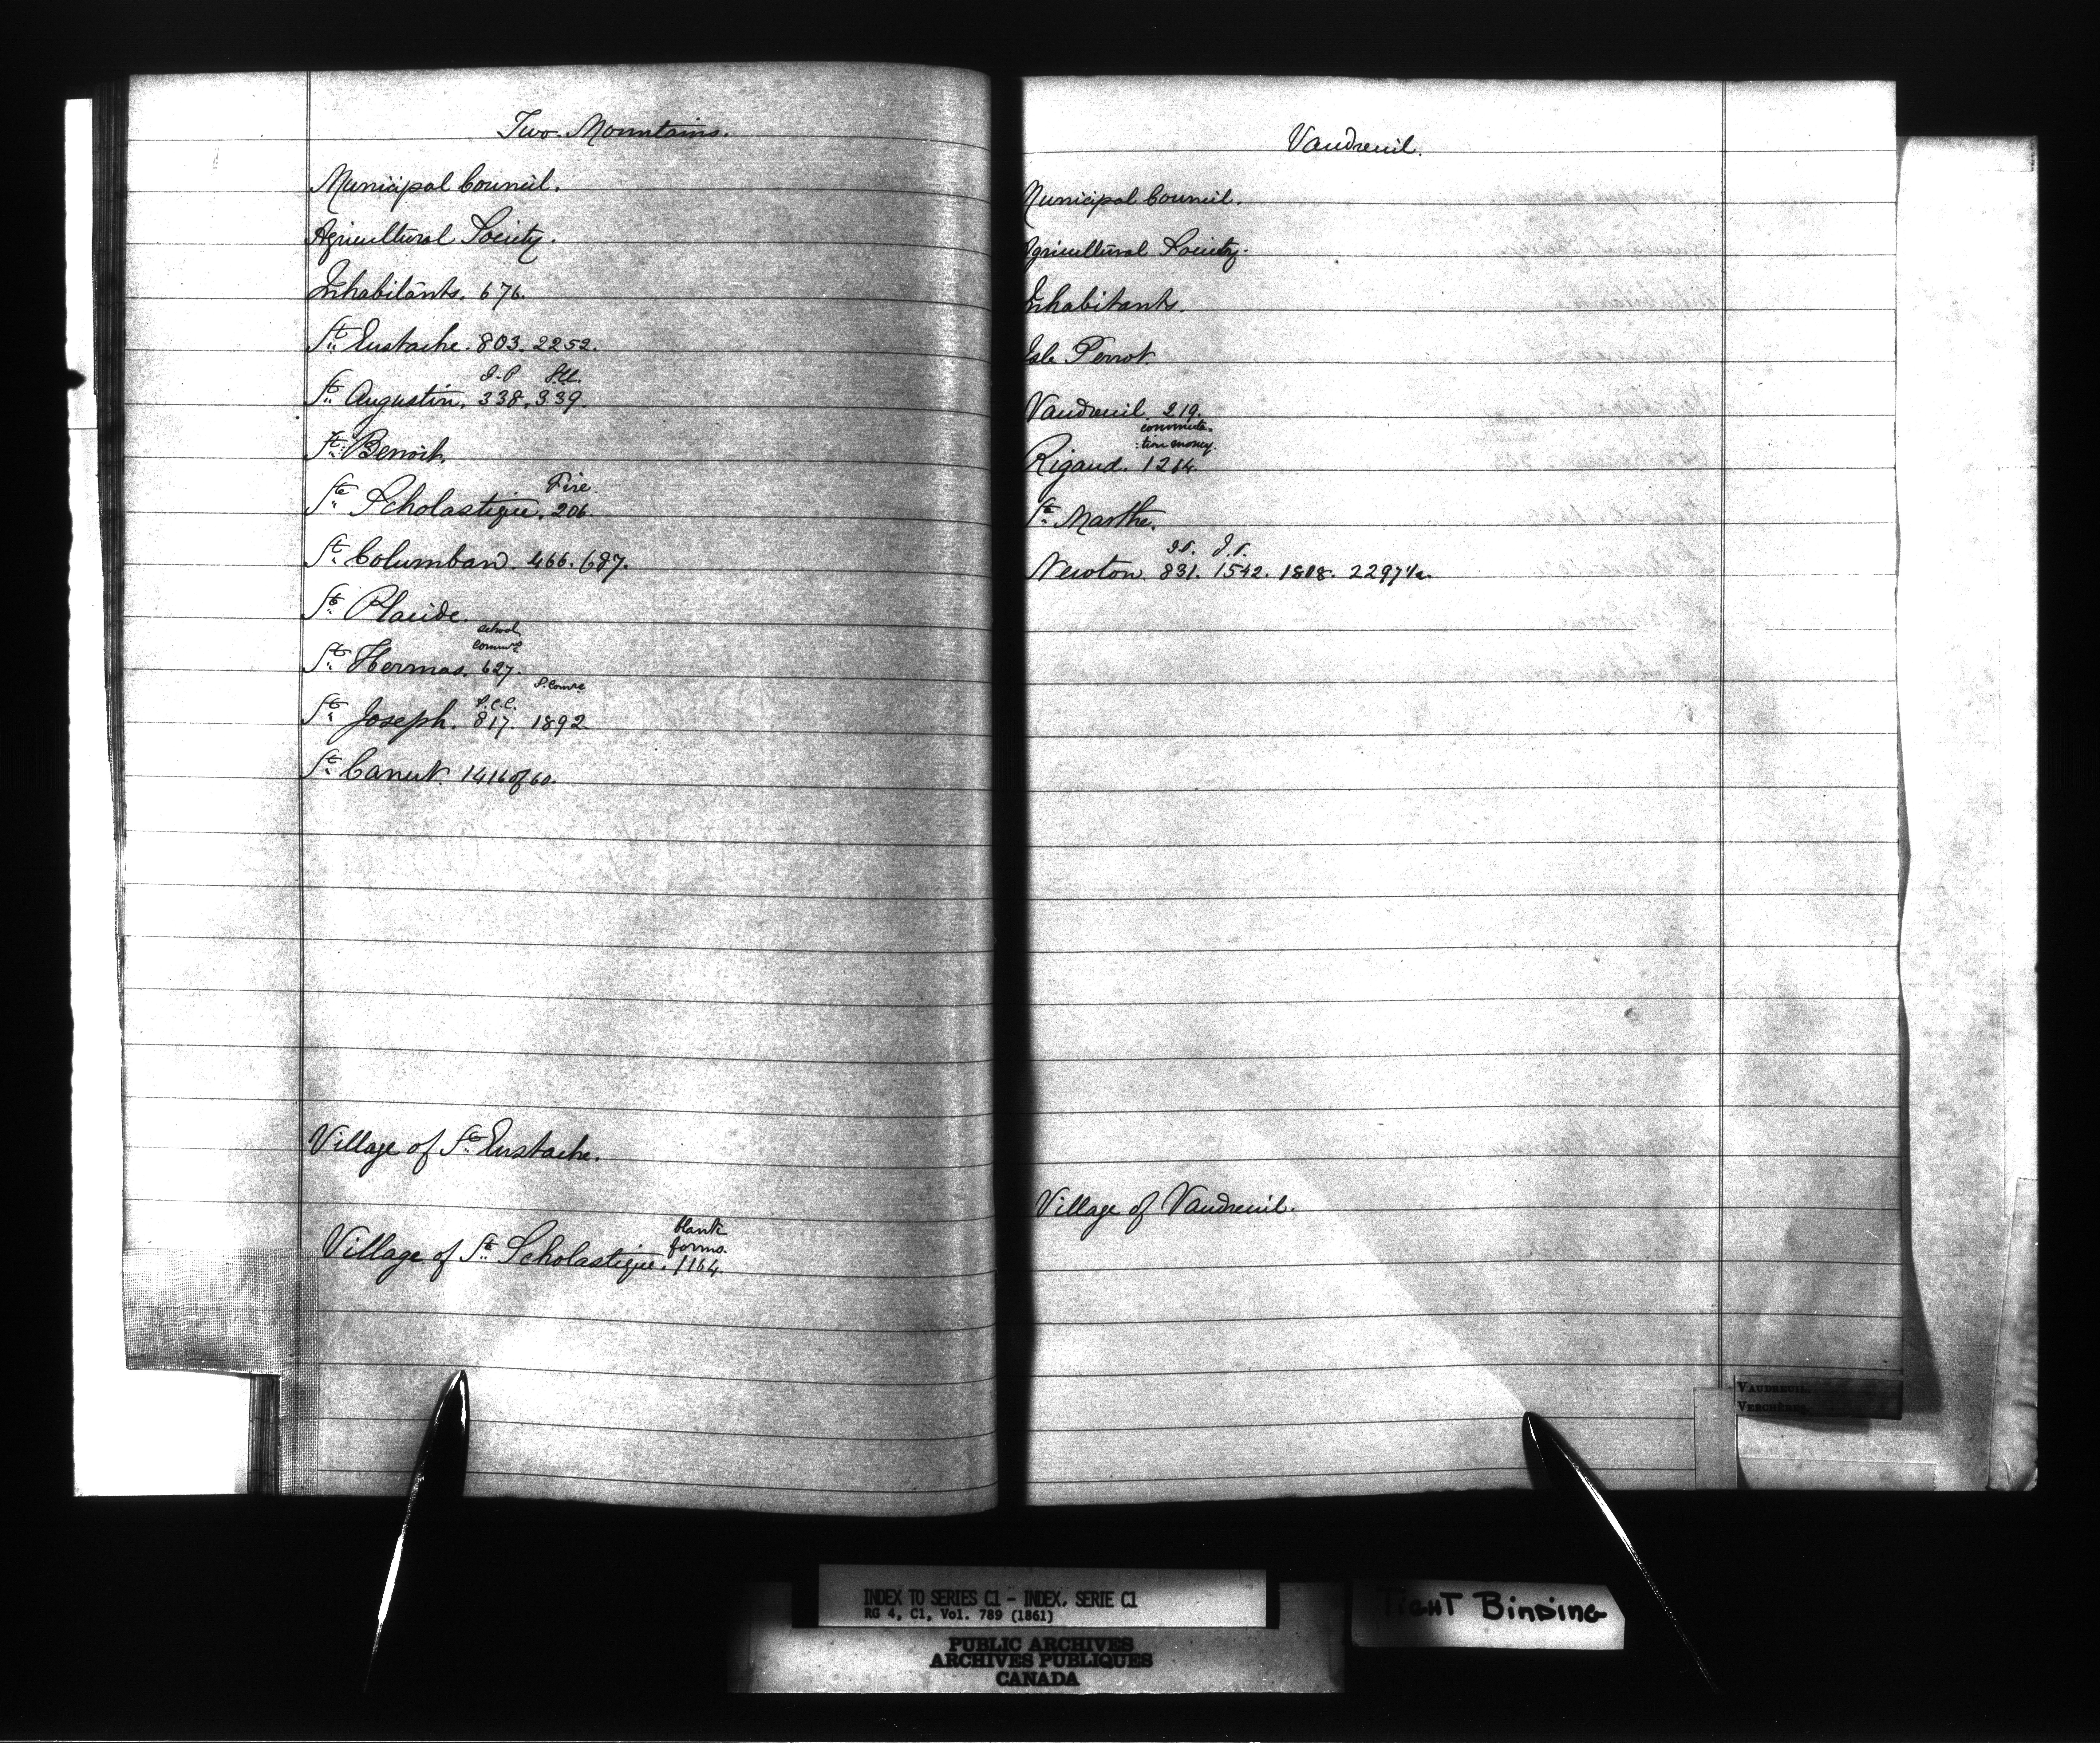 Two Mountains.
Municipal Council.
Agricultural Society.
Inhabitants. 676.
St. Eustache. 803. 2252.
J.P
St. Augustin. 338. 339.
St. Benoit.
Fire
Ste. Scholastique. 206.
St. Columban. 466. 687.
St. Placide.
School
Commrs
St. Hermas. 627.
S. Comre
S.C.C.
St. Joseph. 817. 1892
St. Canut. 1416 of 60.
Village of St. Eustache.
blank
forms.
Village of St. Scholastique. 1164.
Vaudreuil.
Municipal Council.
Agricultural Society.
Inhabitants.
Isle Perrot
Vaudreuil. 219.
commuta-
:tion money.
Rigaud. 1264.
St. Marthe.
J.P. J.P.
Newton. 831. 1542. 1808. 2297½.
Village of Vaudreuil.
VAUDREUIL.
VERCHÈRES.
INDEX TO SERIES C1 - INDEX, SERIE C1
RG 4, C1, Vol. 789 (1861)
PUBLIC ARCHIVES
ARCHIVES PUBLIQUES
CANADA
TIGHT BINDING